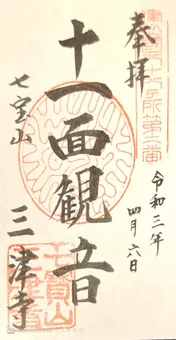 奉拝
令和三年
四月六日
十一面観音
七宝山
三津寺
七寳山